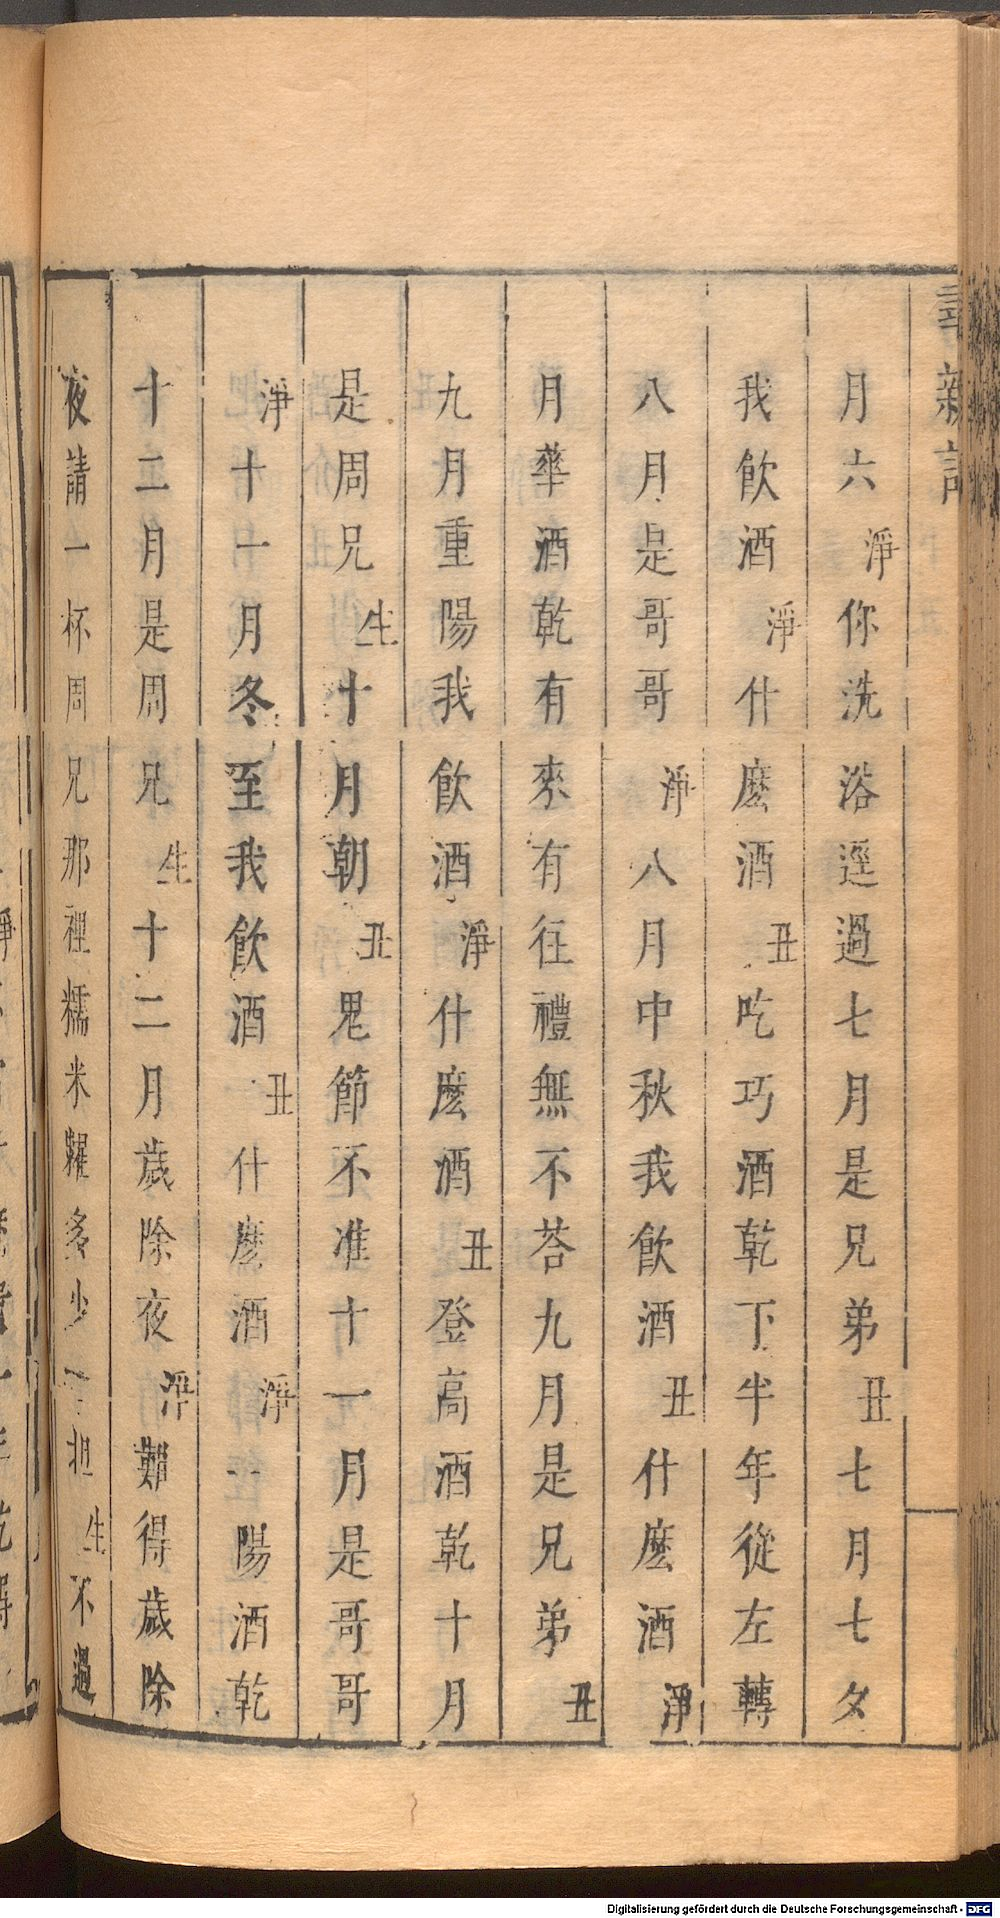 尋親記
月六淨你洗浴遥過七月是兄弟丑七月七夕
我飲酒淨什麽酒丑吃巧酒乾下半年從左轉
八月是哥哥淨八月中秋我飲酒丑什麽酒淨
月華酒乾有來有往禮無不荅九月是兄弟丑
九月重陽我飲酒淨什麽酒丑登高酒乾十月
是周兄生十月朝丑鬼節不准十一月是哥哥
淨十一月冬至我飲酒丑什麽酒淨一陽酒乾
十二月是周兄生十二月歲除夜淨難得歲除
夜請一杯周兄那裡糯米糶多少一担生不過
Digitalisierung gefördert durch die Deutsche Forschungsgemeinschaft - DFG